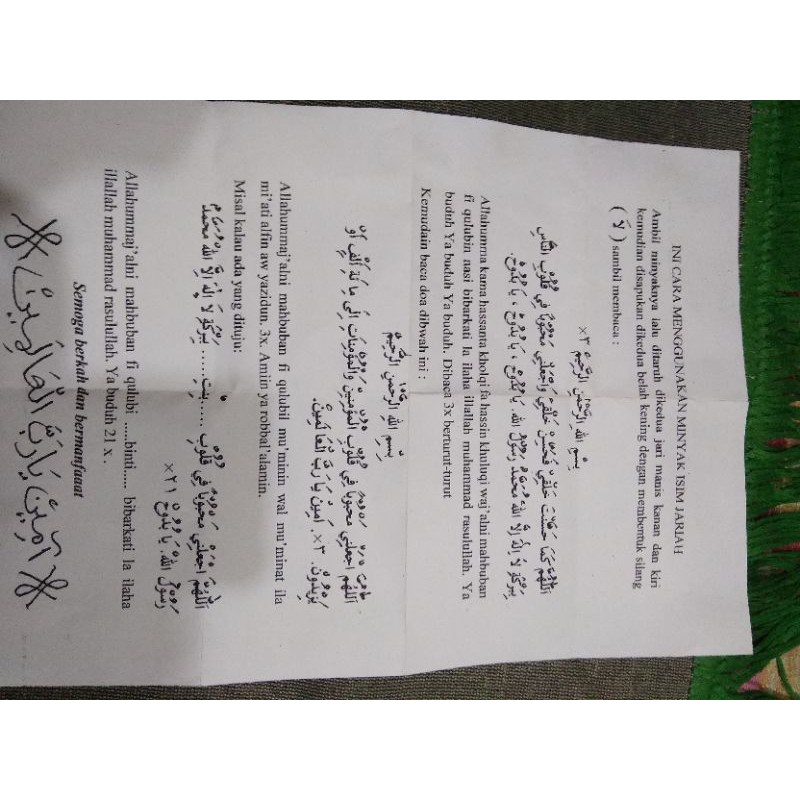 INI CARA MENGGUNAKAN MINYAK ISIM JARIAH
Ambil minyaknya lalu ditaruh dikedua jari manis kanan dan kiri
kemudian disapukan dikedua belah kening dengan membentuk silang
( لا ) sambil membaca :
بِسْمِ اللهِ الرَّحْمٰنِ الرَّحِيْمِ ×٣
اَللّٰهُمَّ كَمَا حَسَّنْتَ خَلْقِيْ فَحَسِّنْ خُلُقِيْ وَاجْعَلْنِيْ مَحْبُوْبًا فِيْ قُلُوْبِ النَّاسِ
بِبَرَكَةِ لَا اِلٰهَ اِلَّا اللهُ مُحَمَّدٌ رَسُوْلُ اللهِ. يَا بُدُوْحُ ، يَا بُدُوْحُ ، يَا بُدُوْحُ.
Allahumma kama hassanta kholqi fa hassin khuluqi waj'alni mahbuban
fi qulubin nasi bibarkati la ilaha illallah muhammad rasulullah. Ya
buduh Ya buduh Ya buduh. Dibaca 3x berturut-turut
Kemudain baca doa dibwah ini :
بِسْمِ اللهِ الرَّحْمٰنِ الرَّحِيْمِ
اَللّٰهُمَّ اجْعَلْنِيْ مَحْبُوْبًا فِيْ قُلُوْبِ الْمُؤْمِنِيْنَ وَالْمُؤْمِنَاتِ اِلَى مِائَةِ اَلْفٍ اَوْ
يَزِيْدُوْنَ. ×٣. اٰمِيْنَ يَا رَبَّ الْعَالَمِيْنَ.
Allahummaj'alni mahbuban fi qulubil mu'minin wal mu'minat ila
mi'ati alfin aw yazidun. 3x. Amiin ya robbal'alamin.
Misal kalau ada yang dituju:
اَللّٰهُمَّ اجْعَلْنِيْ مَحْبُوْبًا فِيْ قُلُوْبِ ...... بِنْتِ ...... بِبَرَكَةِ لَا اِلٰهَ اِلَّا اللهُ مُحَمَّدٌ
رَسُوْلُ اللهِ. يَا بُدُوْحُ ×٢١
Allahummaj'alni mahbuban fi qulubi .....binti..... bibarkati la ilaha
illallah muhammad rasulullah. Ya buduh 21 x .
Semoga berkah dan bermanfaaat
اٰمِيْن يَارَبَّ الْعَالَمِيْن